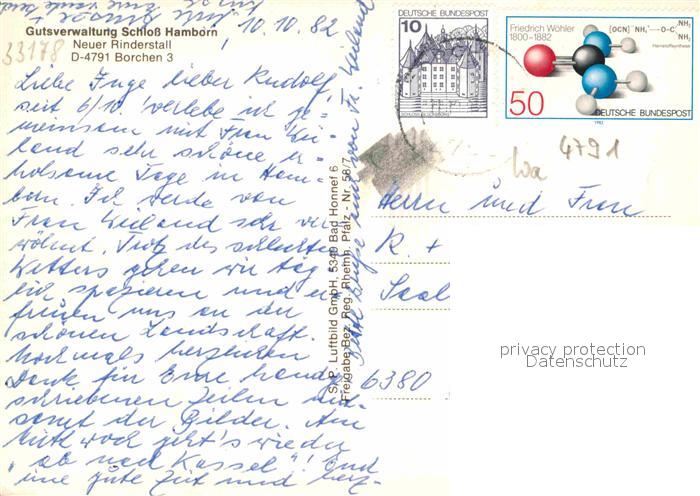 10.10.82
Gutsverwaltung Schloß Hamborn
Neuer Rinderstall
D-4791 Borchen 3
33178
Liebe Inge lieber Rudolf,
seit 6/10. verlebe ich ge-
meinsam mit Frau Wei-
land sehr schöne er-
holsame Tage in Ham-
born. Ich werde von
Frau Weiland sehr ver
wöhnt. Trotz des schlechten
Wetters gehen wir täg
lich spazieren und er
freuen uns an der
schönen Landschaft.
Nochmals herzlichen
Dank für Eure hand
schriebenen Zeilen mit-
samt der Bilder. Am
Mittwoch geht's wieder
"ab nach Kassel"! Und
eine gute Zeit und herz-
von Fr. Weiland
S. P. Luftbild GmbH, 5340 Bad Honnef 6
Freigabe Bez. Reg. Rheinh. Pfalz - Nr. 58/7
DEUTSCHE BUNDESPOST
10
SCHLOSS GLÜCKSBURG
Friedrich Wöhler
1800-1882
[OCN]⁻ NH₄⁺ → O=C NH₂ NH₂
Harnstoffsynthese
50
DEUTSCHE BUNDESPOST
1982
4791
Herrn und Frau
R. +
Saal
6380
privacy protection
Datenschutz